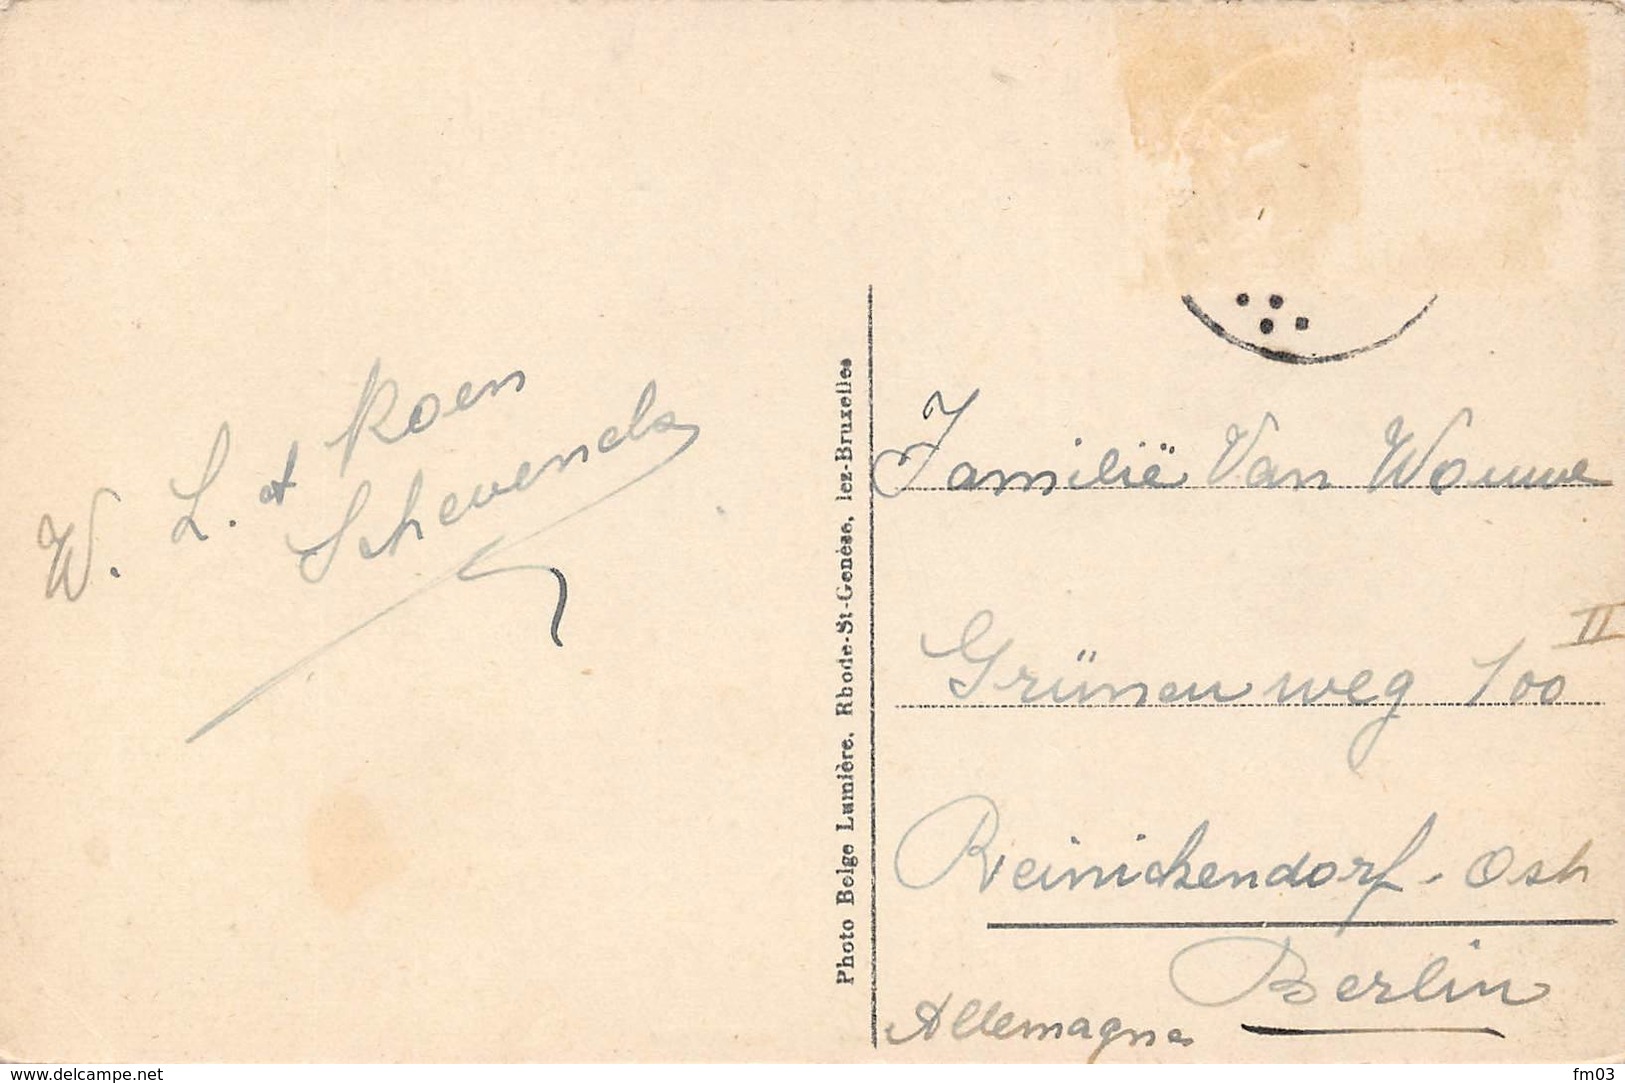 W. L. et Roen
Schevenels
Photo Belge Lumière, Rhode-St-Genèse, lez-Bruxelles
Familië Van Wouwe
Grünenweg 100 II
Reinickendorf - Ost
Berlin
Allemagne
www.delcampe.net
fm03